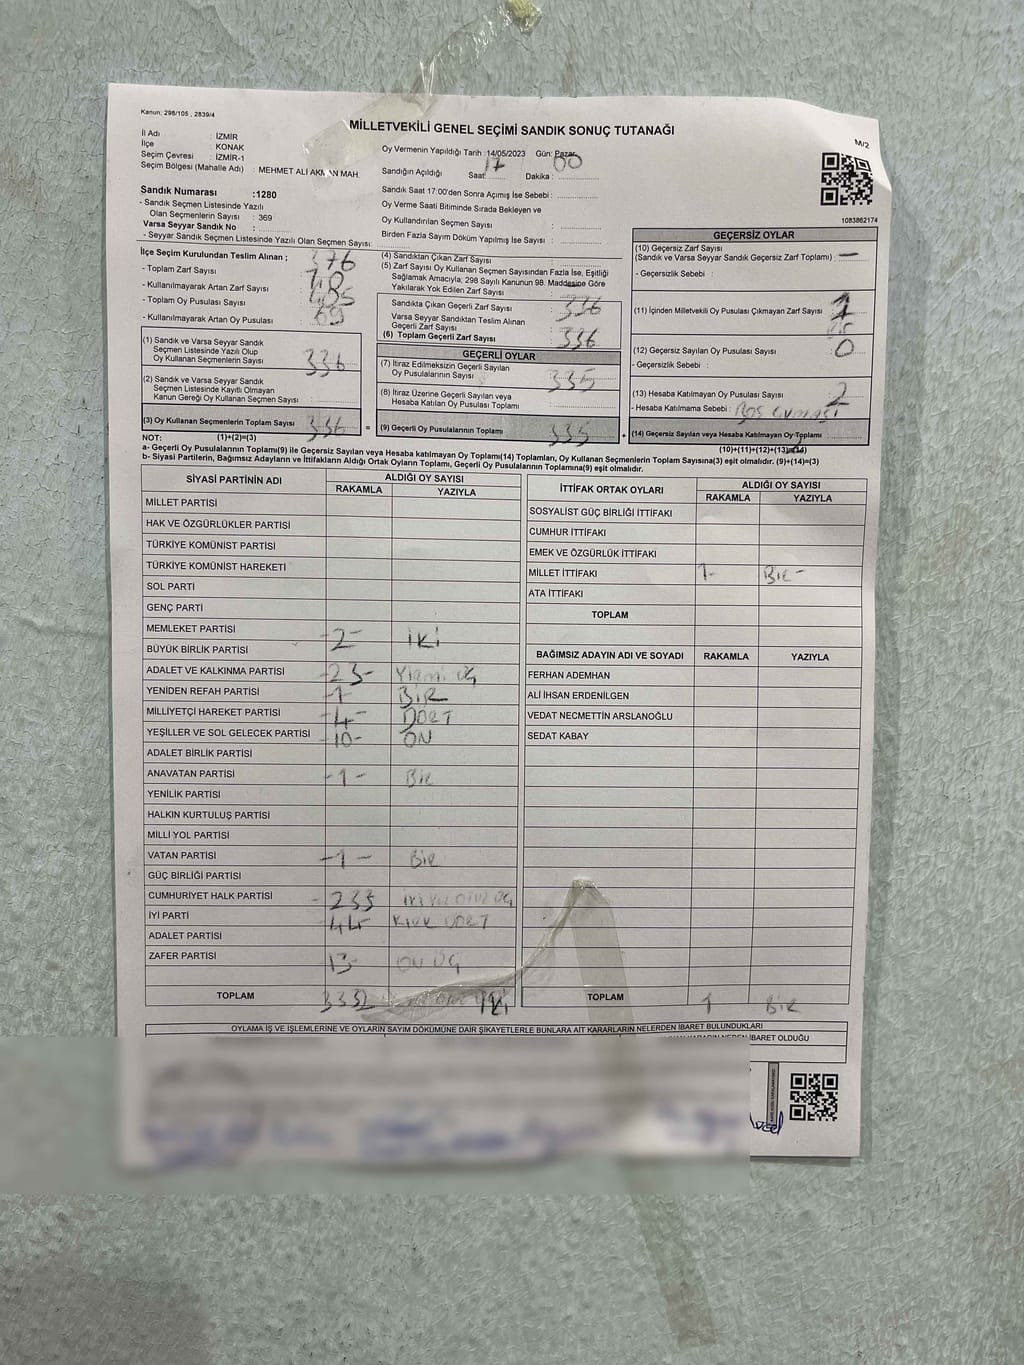 Kanun; 298/105 , 2839/4
MİLLETVEKİLİ GENEL SEÇİMİ SANDIK SONUÇ TUTANAĞI
M/2
İl Adı : İZMİR
İlçe : KONAK
Seçim Çevresi : İZMİR-1
Seçim Bölgesi (Mahalle Adı) : MEHMET ALİ AKMAN MAH.
Oy Vermenin Yapıldığı Tarih :14/05/2023 Gün: Pazar
Sandığın Açıldığı Saat: 17 Dakika : 00
Sandık Numarası :1280
- Sandık Seçmen Listesinde Yazılı
Olan Seçmenlerin Sayısı : 369
Varsa Seyyar Sandık No :
- Seyyar Sandık Seçmen Listesinde Yazılı Olan Seçmen Sayısı:
Sandık Saat 17:00'den Sonra Açımış İse Sebebi :
Oy Verme Saati Bitiminde Sırada Bekleyen ve
Oy Kullandırılan Seçmen Sayısı :
Birden Fazla Sayım Döküm Yapılmış İse Sayısı :
1083862174
İlçe Seçim Kurulundan Teslim Alınan ;
- Toplam Zarf Sayısı 376
- Kullanılmayarak Artan Zarf Sayısı
- Toplam Oy Pusulası Sayısı
- Kullanılmayarak Artan Oy Pusulası 69
(1) Sandık ve Varsa Seyyar Sandık
Seçmen Listesinde Yazılı Olup
Oy Kullanan Seçmenlerin Sayısı 336
(2) Sandık ve Varsa Seyyar Sandık
Seçmen Listesinde Kayıtlı Olmayan
Kanun Gereği Oy Kullanan Seçmen Sayısı :
(3) Oy Kullanan Seçmenlerin Toplam Sayısı 336 =
(4) Sandıktan Çıkan Zarf Sayısı :
(5) Zarf Sayısı Oy Kullanan Seçmen Sayısından Fazla İse, Eşitliği
Sağlamak Amacıyla; 298 Sayılı Kanunun 98. Maddesine Göre
Yakılarak Yok Edilen Zarf Sayısı :
Sandıkta Çıkan Geçerli Zarf Sayısı 336
Varsa Seyyar Sandıktan Teslim Alınan
Geçerli Zarf Sayısı :
(6) Toplam Geçerli Zarf Sayısı 336
GEÇERLİ OYLAR
(7) İtiraz Edilmeksizin Geçerli Sayılan
Oy Pusulalarının Sayısı 335
(8) İtiraz Üzerine Geçerli Sayılan veya
Hesaba Katılan Oy Pusulası Toplamı
(9) Geçerli Oy Pusulalarının Toplamı 335 +
GEÇERSİZ OYLAR
(10) Geçersiz Zarf Sayısı
(Sandık ve Varsa Seyyar Sandık Geçersiz Zarf Toplamı) : —
- Geçersizlik Sebebi :
(11) İçinden Milletvekili Oy Pusulası Çıkmayan Zarf Sayısı 1
(12) Geçersiz Sayılan Oy Pusulası Sayısı 0
- Geçersizlik Sebebi :
(13) Hesaba Katılmayan Oy Sayısı 2
- Hesaba Katılmama Sebebi : BOŞ
(14) Geçersiz Sayılan veya Hesaba Katılmayan Oy Toplamı :
NOT: (1)+(2)=(3) (10)+(11)+(12)+(13)=(14)
a- Geçerli Oy Pusulalarının Toplamı(9) ile Geçersiz Sayılan veya Hesaba Katılmayan Oy Toplamı(14) Toplamları, Oy Kullanan Seçmenlerin Toplam Sayısına(3) eşit olmalıdır. (9)+(14)=(3)
b- Siyasi Partilerin, Bağımsız Adayların ve İttifakların Aldığı Ortak Oyların Toplamı, Geçerli Oy Pusulalarının Toplamına(9) eşit olmalıdır.
SİYASİ PARTİNİN ADI ALDIĞI OY SAYISI
RAKAMLA YAZIYLA
MİLLET PARTİSİ
HAK VE ÖZGÜRLÜKLER PARTİSİ
TÜRKİYE KOMÜNİST PARTİSİ
TÜRKİYE KOMÜNİST HAREKETİ
SOL PARTİ
GENÇ PARTİ
MEMLEKET PARTİSİ -2- İKİ
BÜYÜK BİRLİK PARTİSİ
ADALET VE KALKINMA PARTİSİ -23- YİRMİ ÜÇ
YENİDEN REFAH PARTİSİ -1- BİR
MİLLİYETÇİ HAREKET PARTİSİ -4- DÖRT
YEŞİLLER VE SOL GELECEK PARTİSİ -10- ON
ADALET BİRLİK PARTİSİ
ANAVATAN PARTİSİ -1- BİR
YENİLİK PARTİSİ
HALKIN KURTULUŞ PARTİSİ
MİLLİ YOL PARTİSİ
VATAN PARTİSİ -1- BİR
GÜÇ BİRLİĞİ PARTİSİ
CUMHURİYET HALK PARTİSİ -233 İKİYÜZOTUZ ÜÇ
İYİ PARTİ -44- KIRK DÖRT
ADALET PARTİSİ
ZAFER PARTİSİ -13- ON ÜÇ
TOPLAM
İTTİFAK ORTAK OYLARI ALDIĞI OY SAYISI
RAKAMLA YAZIYLA
SOSYALİST GÜÇ BİRLİĞİ İTTİFAKI
CUMHUR İTTİFAKI
EMEK VE ÖZGÜRLÜK İTTİFAKI
MİLLET İTTİFAKI 1- BİR-
ATA İTTİFAKI
TOPLAM
BAĞIMSIZ ADAYIN ADI VE SOYADI RAKAMLA YAZIYLA
FERHAN ADEMHAN
ALİ İHSAN ERDENİLGEN
VEDAT NECMETTİN ARSLANOĞLU
SEDAT KABAY
TOPLAM 1 BİR
OYLAMA İŞ VE İŞLEMLERİNE VE OYLARIN SAYIM DÖKÜMÜNE DAİR ŞİKAYETLERLE BUNLARA AİT KARARLARIN NELERDEN İBARET BULUNDUKLARI
KARARIN NEDEN İBARET OLDUĞU